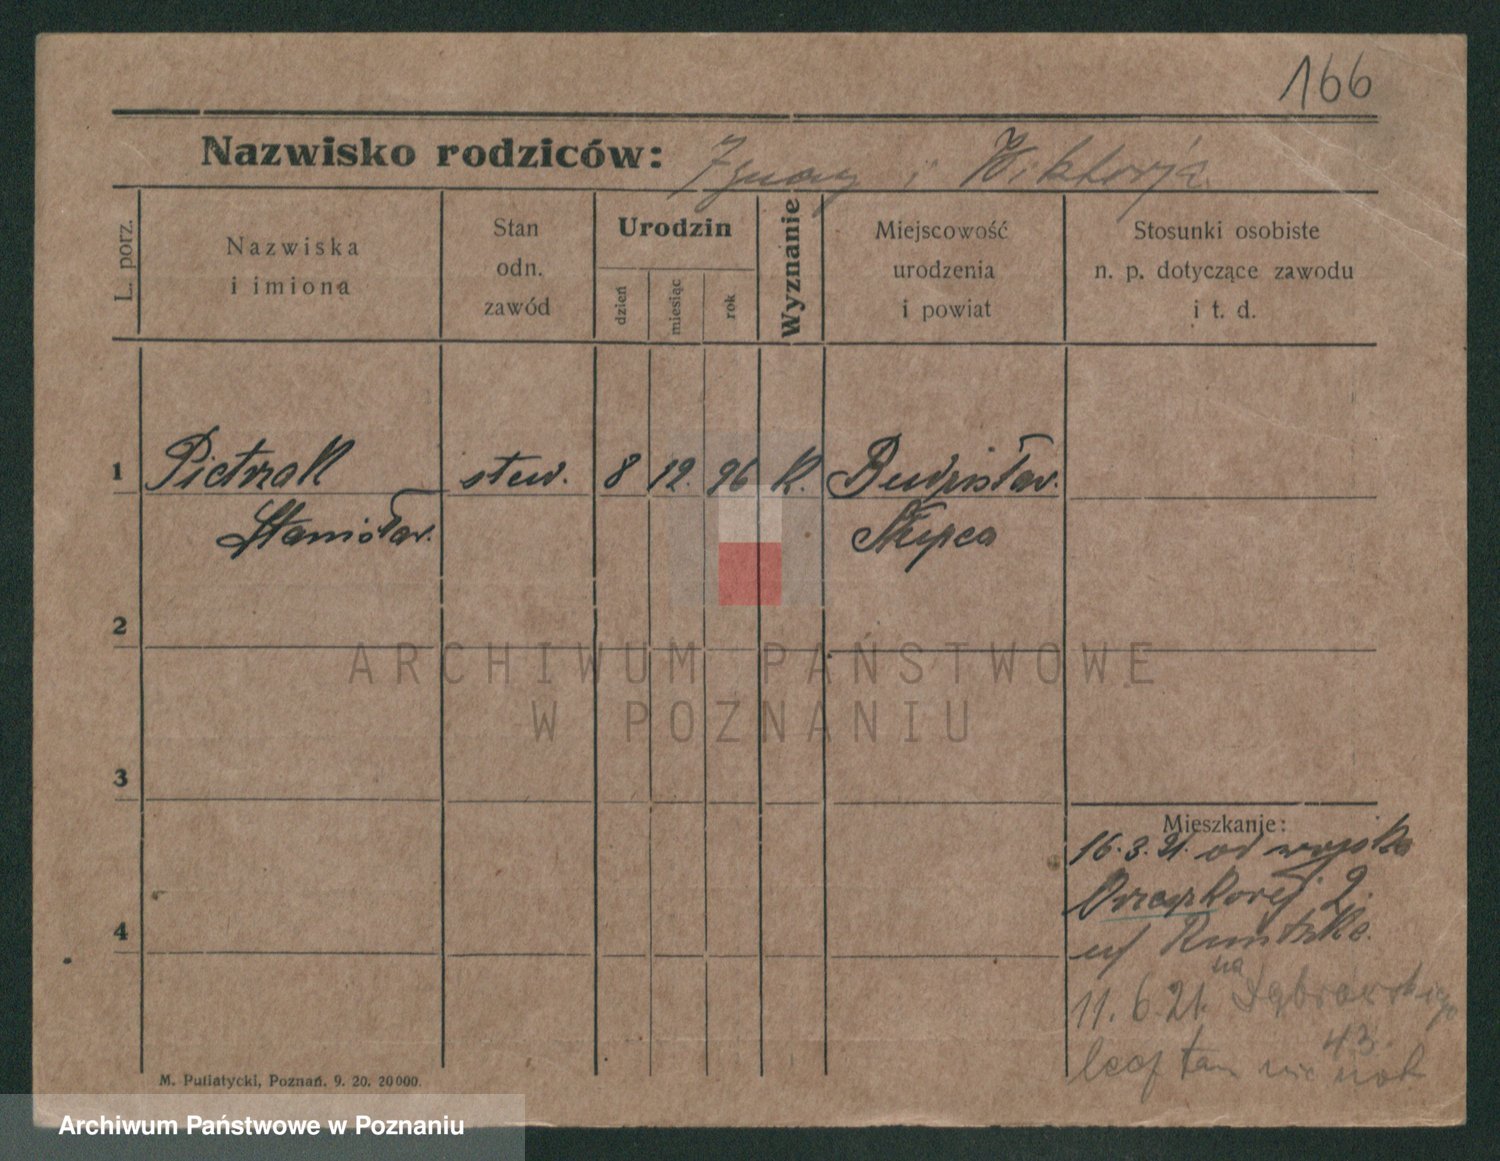 166
Nazwisko rodziców: Ignacy i Wiktorja
L. porz.
Nazwiska
i imiona
Stan
odn.
zawód
Urodzin
dzień
miesiąc
rok
Wyznanie
Miejscowość
urodzenia
i powiat
Stosunki osobiste
n. p. dotyczące zawodu
i t. d.
1 Pietrzak stew. 8 12. 96 K. Budzisław.
Stanisław. Słupca
2
ARCHIWUM PAŃSTWOWE
W POZNANIU
3
Mieszkanje:
16.3.21. od wojska
2.
4
11.6.21. na Dąbrowskiego
43.
tam nie
M. Puliatycki, Poznań. 9. 20. 20000.
Archiwum Państwowe w Poznaniu